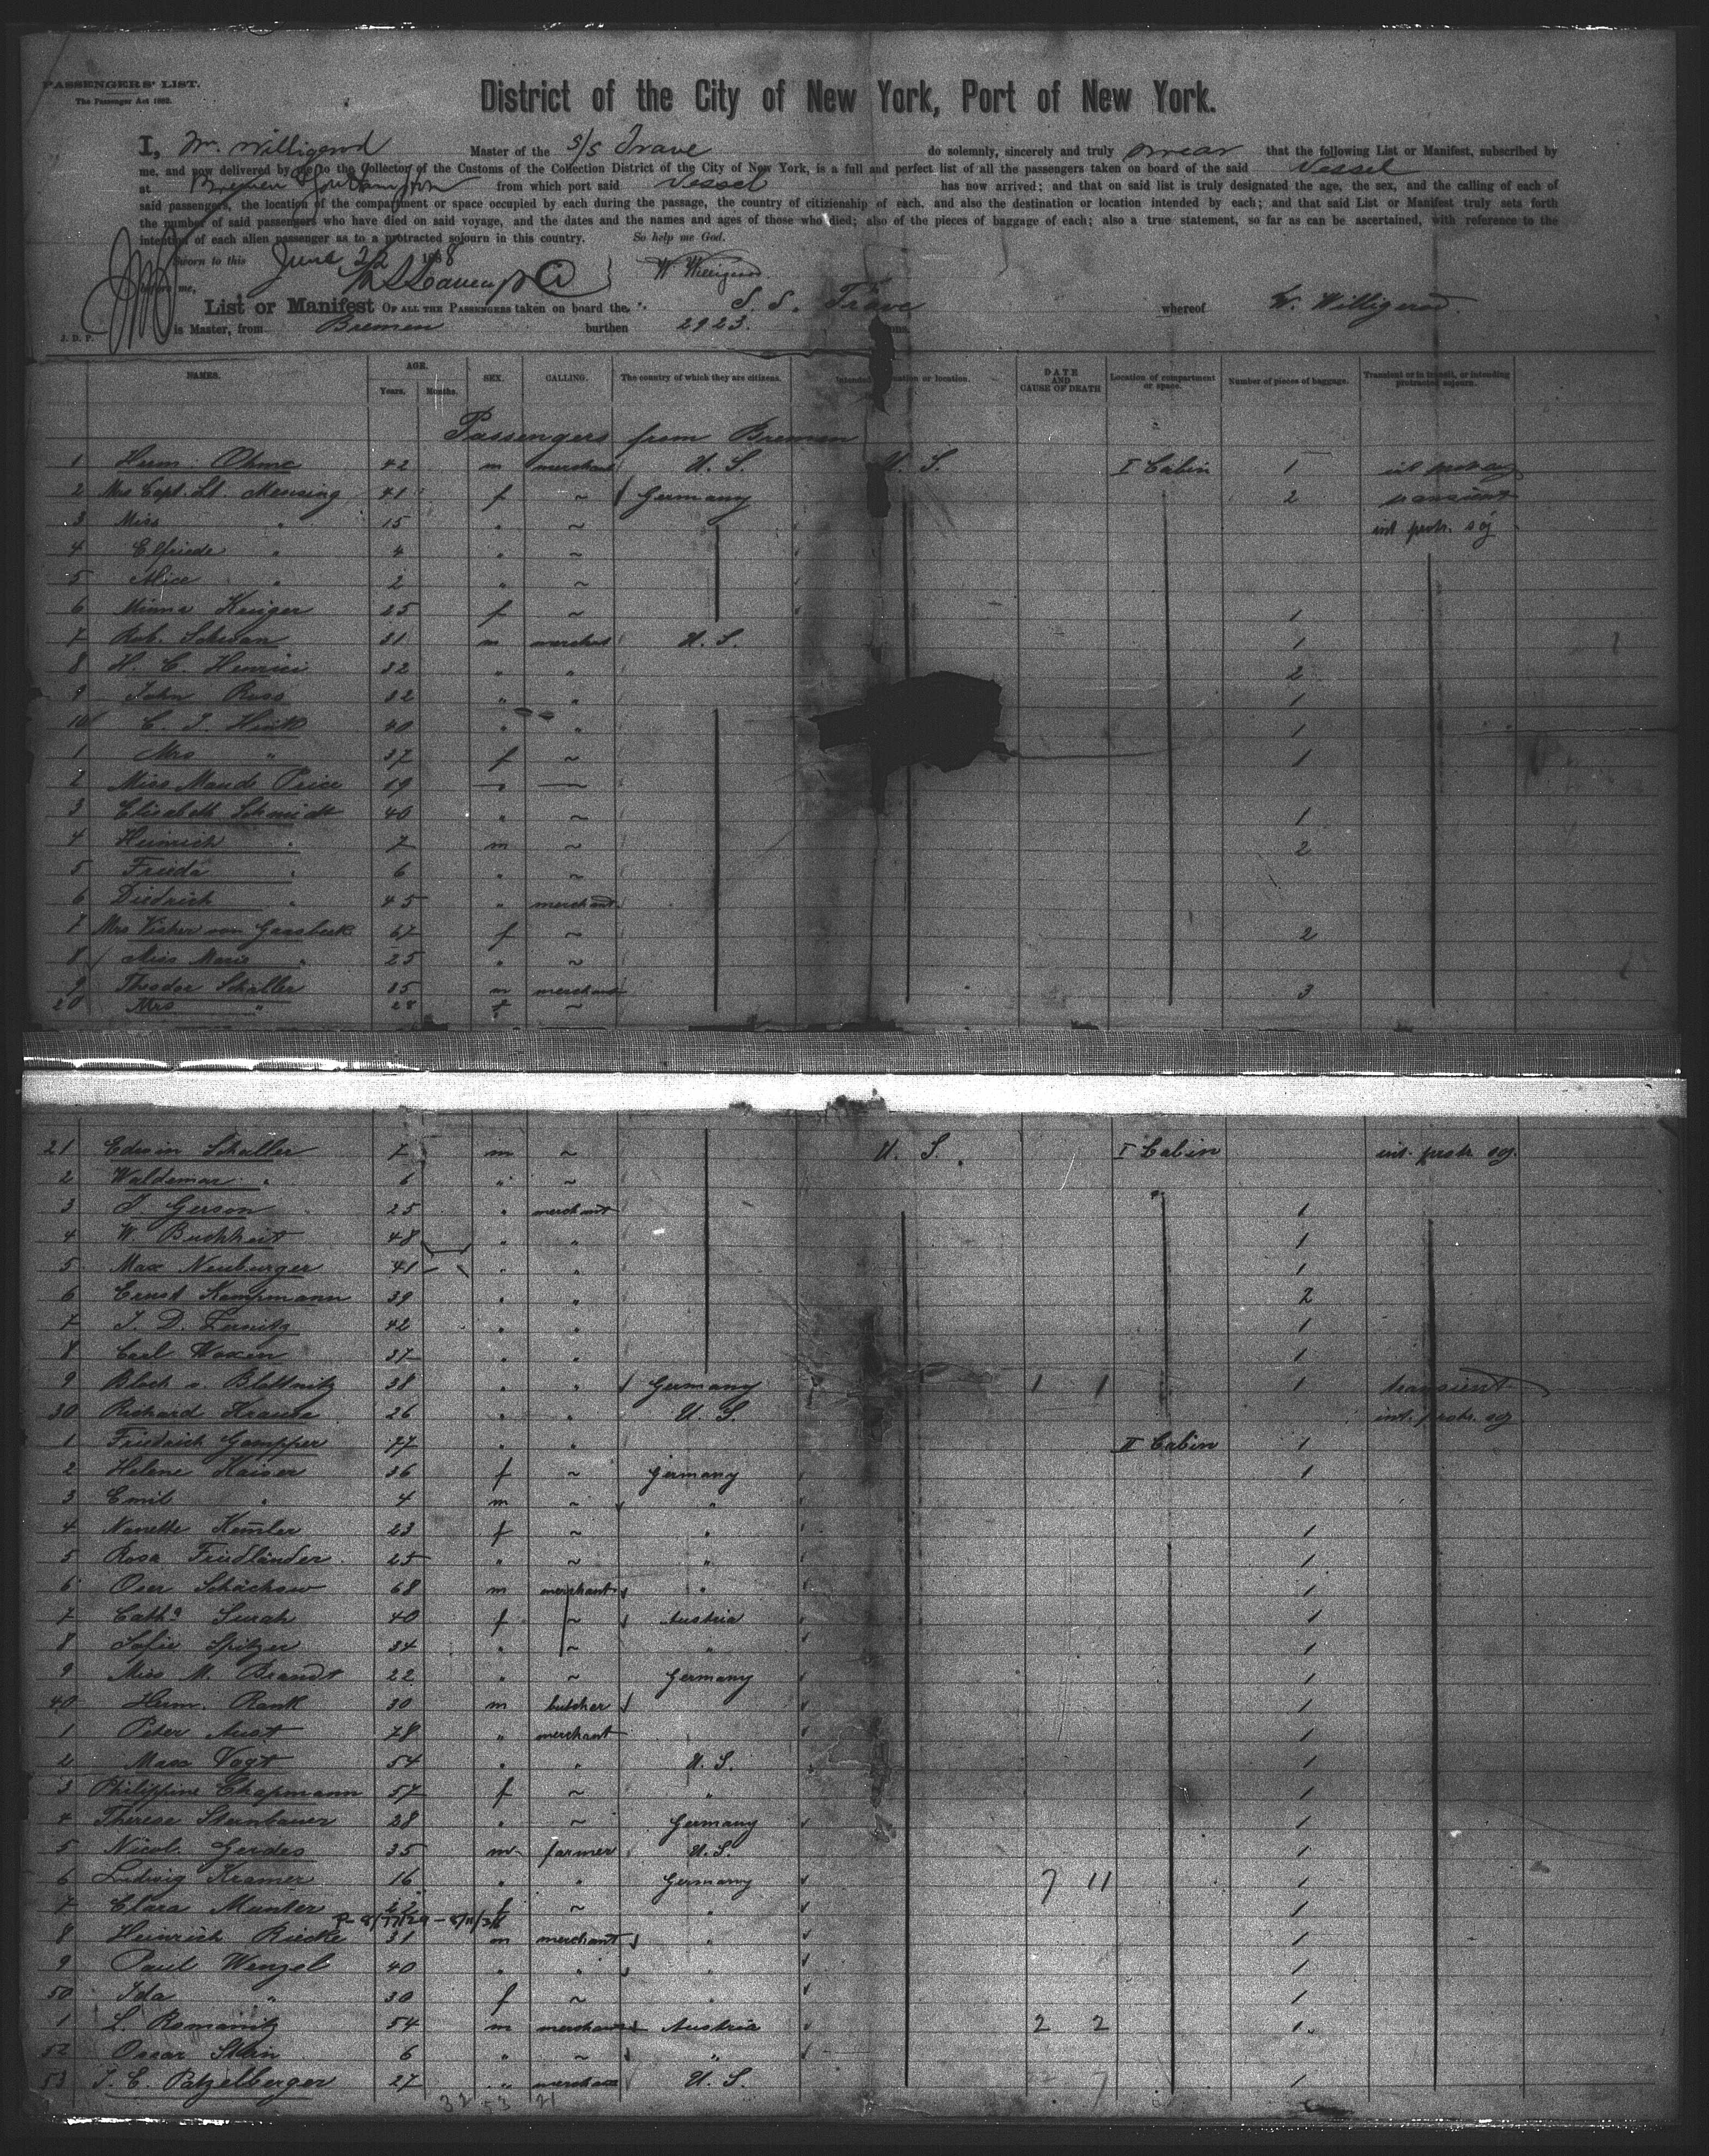 PASSENGERS' LIST.
The Passenger Act 1882.
District of the City of New York, Port of New York.
I, W. Willigerod Master of the S/S Trave do solemnly, sincerely and truly swear that the following List or Manifest, subscribed by
me, and now delivered by me to the Collector of the Customs of the Collection District of the City of New York, is a full and perfect list of all the passengers taken on board of the said Vessel
at Bremen Southampton from which port said Vessel has now arrived; and that on said list is truly designated the age, the sex, and the calling of each of
said passengers, the location of the compartment or space occupied by each during the passage, the country of citizenship of each, and also the destination or location intended by each; and that said List or Manifest truly sets forth
the number of said passengers who have died on said voyage, and the dates and the names and ages of those who died; also of the pieces of baggage of each; also a true statement, so far as can be ascertained, with reference to the
intention of each alien passenger as to a protracted sojourn in this country. So help me God.
Sworn to this June 22 1888
before me, W. Willigerod
List or Manifest OF ALL THE PASSENGERS taken on board the S. S. Trave whereof W. Willigerod.
J. D. P. is Master, from Bremen burthen 2923. tons.
NAMES. AGE. Years. Months. SEX. CALLING. The country of which they are citizens. Intended destination or location. DATE AND CAUSE OF DEATH Location of compartment or space. Number of pieces of baggage. Transient or in transit, or intending protracted sojourn.
Passengers from Bremen
1 Herm. Ohme 42 m merchant U. S. U. S. I Cabin 1
2 Mrs Capt. Lt. Mensing 41 f ~ Germany 2 transient
3 Miss " 15 " ~ int. protr. soj
4 Elfriede " 4 " ~
5 Alice " 2 " ~
6 Minna Kruger 25 f ~ 1
7 Rob. Schwan 31 m merchant U. S. 1
8 H. C. Henrici 32 " " 2
9 John Russ 32 " " 1
10 C. J. Hink 40 " " 1
1 Mrs " 37 f ~ 1
2 Miss Maude Price 19
3 Elisabeth Schmidt 40 " ~ 1
4 Heinrich " 7 m ~ 2
5 Frieda " 6 " ~
6 Diedrich " 45 " merchant
7 Mrs Visher von Gaasbeek 67 f ~ 2
8 Miss Marie " 25 " ~
9 Theodor Schaller 35 m merchant 3
20 Mrs " 28 f ~
21 Edwin Schaller 7 m ~ U. S. I Cabin int. protr. soj.
2 Waldemar " 6 " ~
3 J. Gerson 25 " merchant 1
4 W. Buchheit 48 " " 1
5 Max Neuburger 41 " " 1
6 Ernst Kampmann 39 " " 2
7 J. D. Zernitz 42 " " 1
8 Carl Waxen 37 " " 1
9 Bloch v. Blottnitz 38 " " Germany 1 1 1 transient
30 Richard Krause 26 " " U. S. int. protr. soj
1 Friedrich Gompper 27 " " II Cabin 1
2 Helene Kaiser 36 f ~ Germany 1
3 Emil " 4 m ~ "
4 Nanette Kemler 23 f ~ " 1
5 Rosa Friedländer 25 " ~ " 1
6 Oser Schächow 68 m merchant " 1
7 Catha Surah 40 f ~ Austria 1
8 Sofie Spitzer 34 " ~ " 1
9 Miss M. Brandt 22 " ~ Germany 1
40 Herm. Rank 30 m butcher 1
1 Peter Aust 28 " merchant 1
2 Max Vogt 54 " " U. S. 1
3 Philippine Chapmann 57 f ~ " 1
4 Therese Steinbauer 28 " ~ Germany 1
5 Nicol. Gerdes 35 m farmer U. S. 1
6 Ludwig Kramer 16 " " Germany 7 11 1
7 Clara Munter f ~ " 1
8 Heinrich Riecke 31 m merchant " 1
9 Paul Wenzel 40 " " " 1
50 Ida " 30 f ~ " 1
1 L. Romanitz 54 m merchant Austria 2 2 1
52 Oscar Stein 6 " ~ "
53 J. E. Patzelberger 27 " merchant U. S. 7 1
32 53 21